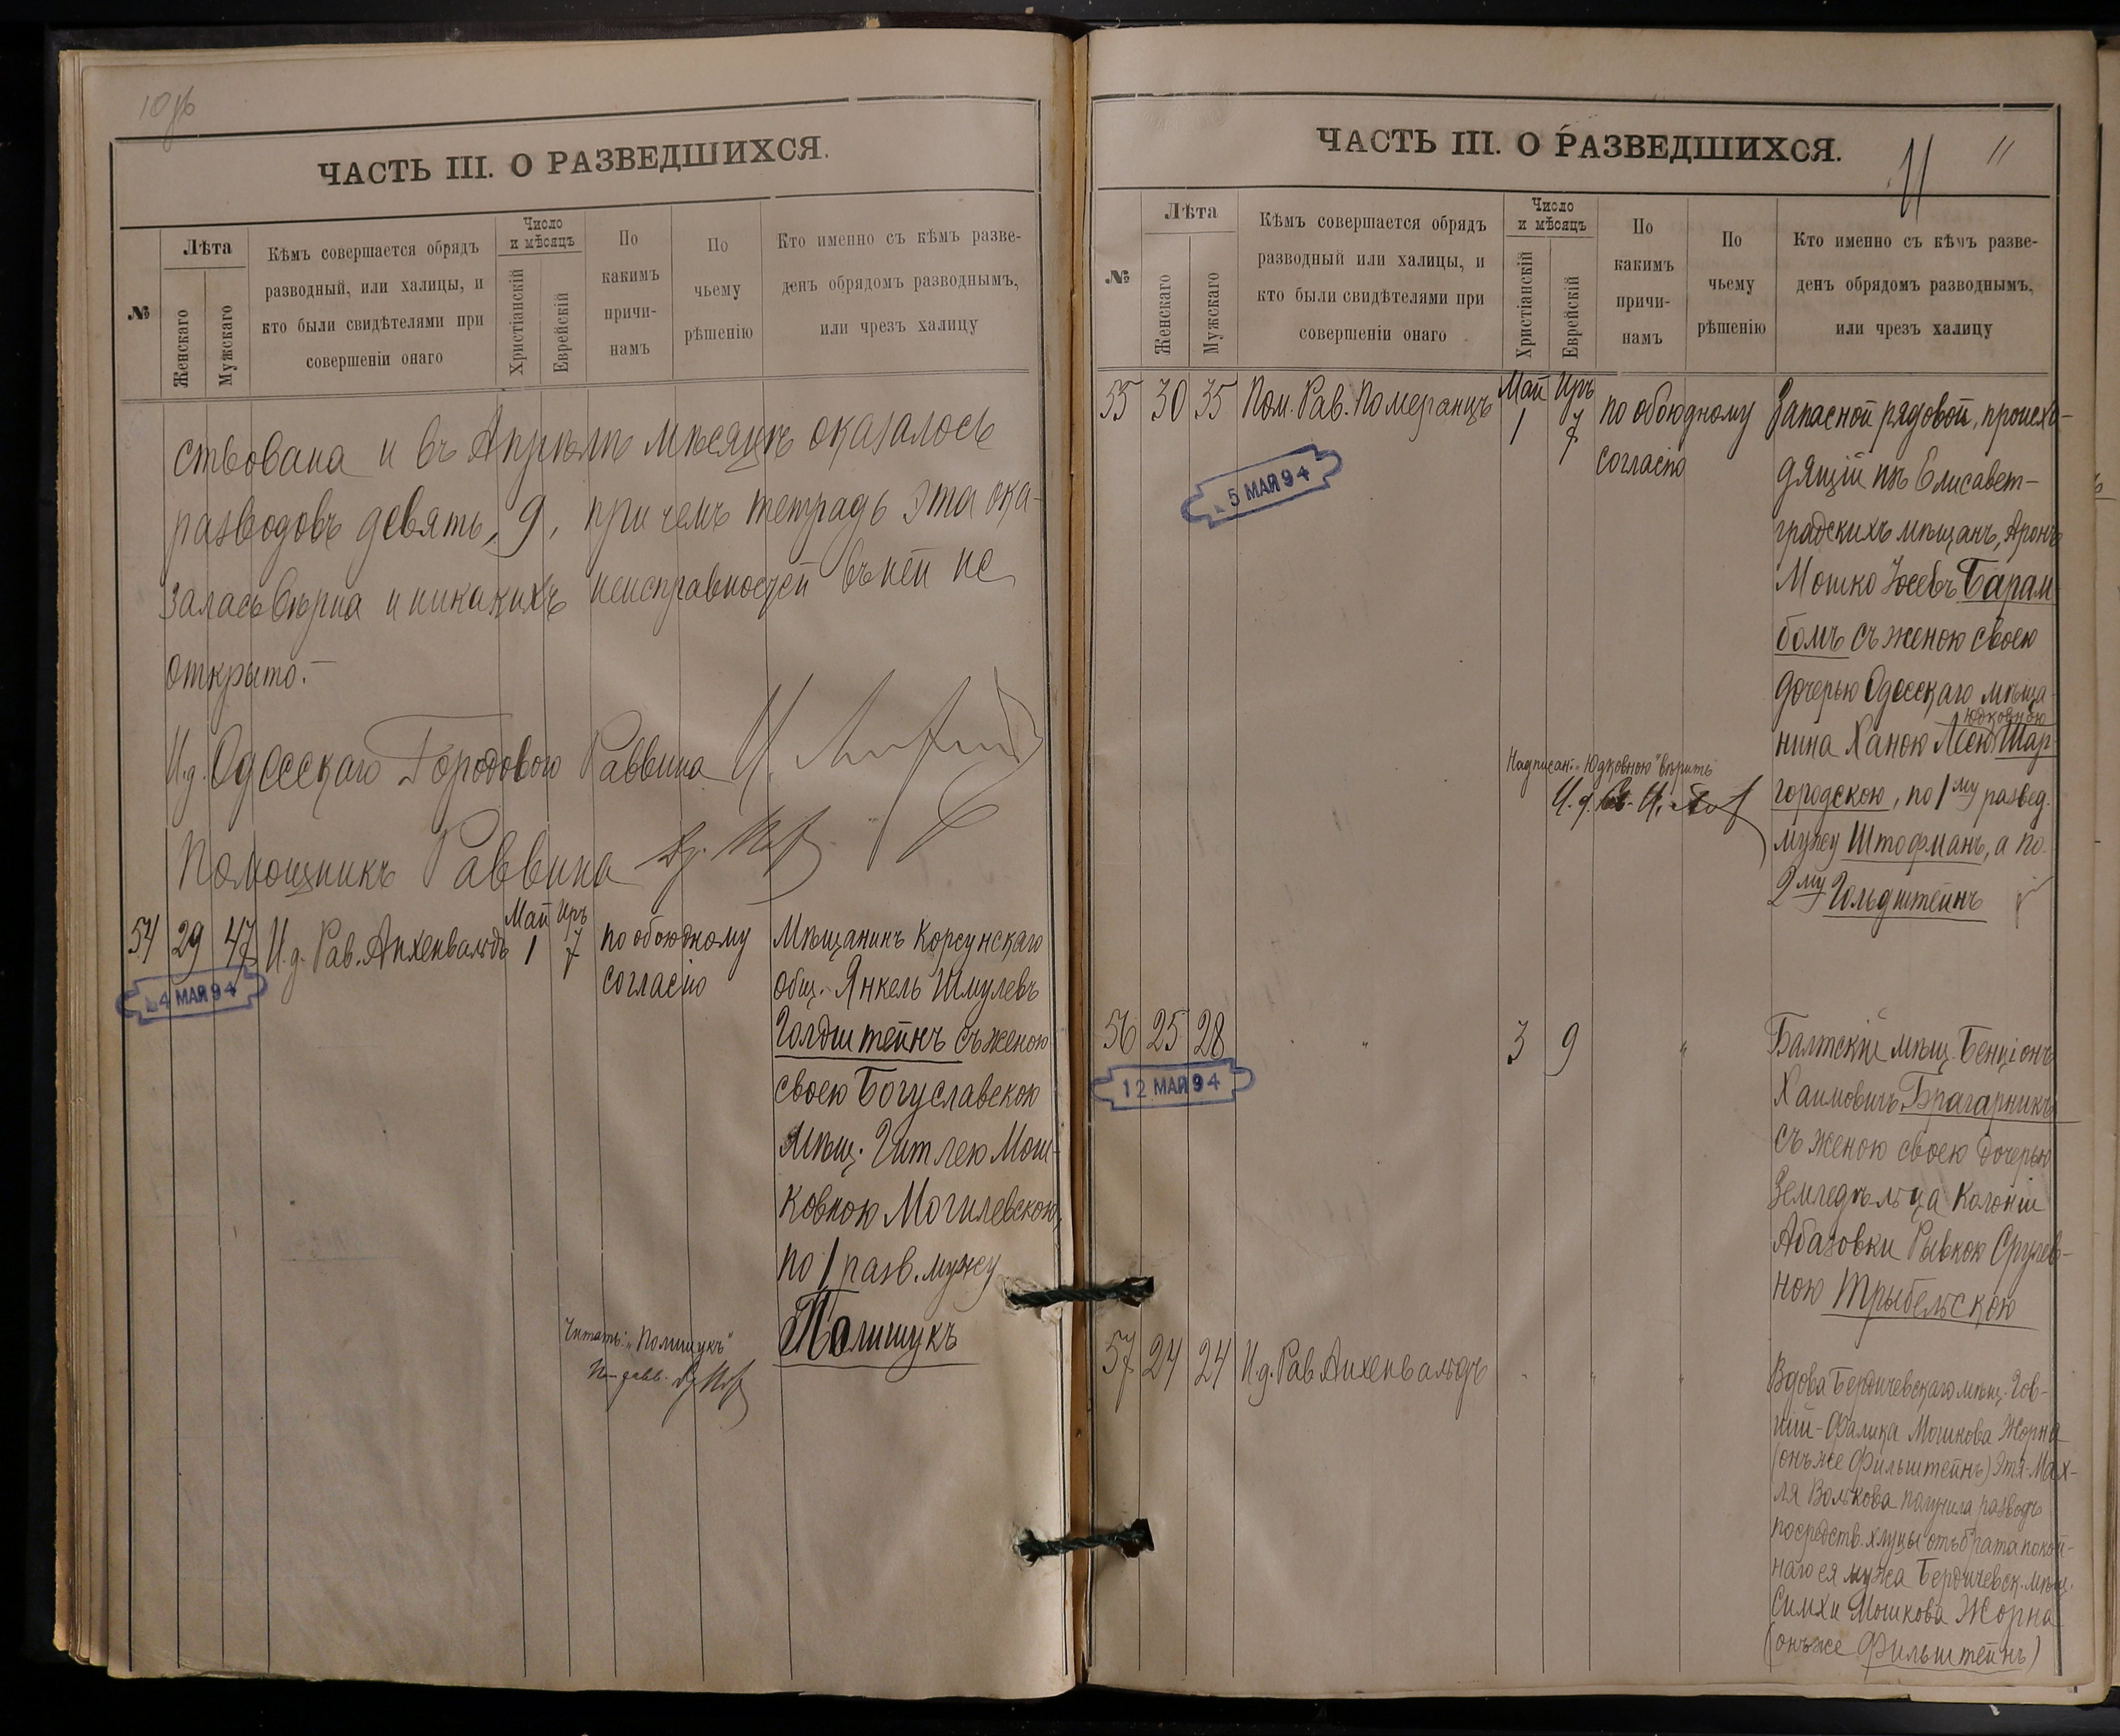 10об
ЧАСТЬ III. О РАЗВЕДШИХСЯ.
№
Лѣта
Женскаго
Мужскаго
Кѣмъ совершается обрядъ
разводный, или халицы, и
кто были свидѣтелями при
совершеніи онаго
Число
и мѣсяцъ
Христіанскій
Еврейскій
По
какимъ
причи-
намъ
По
чьему
рѣшенію
Кто именно съ кѣмъ разве-
денъ обрядомъ разводнымъ,
или чрезъ халицу
ствована и въ Апрѣлѣ мѣсяцѣ оказалось
разводовъ девять, 9, при чемъ тетрадь эта ока-
залась вѣрна и никакихъ неисправностей въ ней не
открыто.-
И.д. Одесскаго Городового Раввина
Помощникъ Раввина
54 29 47 И.д. Рав. Айхенвальдъ
Май Иръ
1 7
по обоюдному
согласію
Мѣщанинъ Корсунскаго
общ. Янкель Шмулевъ
Голдштейнъ съ женою
своею Богуславскою
мѣщ. Гитлею Мош-
ковною Могилевскою,
по 1 разв. мужу
Полишукъ
4 МАЯ 94
Читать: "Полишукъ"
ЧАСТЬ III. О РАЗВЕДШИХСЯ.
11
11
№
Лѣта
Женскаго
Мужскаго
Кѣмъ совершается обрядъ
разводный или халицы, и
кто были свидѣтелями при
совершеніи онаго
Число
и мѣсяцъ
Христіанскій
Еврейскій
По
какимъ
причи-
намъ
По
чьему
рѣшенію
Кто именно съ кѣмъ разве-
денъ обрядомъ разводнымъ,
или чрезъ халицу
55 30 35 Пом. Рав. Померанцъ
Май Иръ
1 7
по обоюдному
согласію
5 МАЯ 94
Запасной рядовой, происхо-
дящій изъ Елисавет-
градскихъ мѣщанъ, Аронъ
Мошко Іосевъ Барам-
бомъ съ женою своею
дочерью Одесскаго мѣща-
Юдковною
нина Ханою Леею Шар-
городскою, по 1му развед.
мужу Штофманъ, а по
2му Гольдштейнъ
Надписан: "Юдковною" вѣрить
56 25 28 " 3 9 "
12 МАЯ 94
Балтскій мѣщ. Бенціонъ
Хаимовичъ Брагарникъ
съ женою своею дочерью
Земледѣльца колоніи
Абазовки Рывкою Срулев-
ною Трыбельскою
57 24 24 И.д. Рав. Айхенвальдъ " " "
Вдова Бердичевскаго мѣщ. Гов-
шій-Фалика Мошкова Жорна
(онъ же Фильштейнъ) Этя-Мах-
ля Волькова получила разводъ
посредств. хлицы отъ брата покой-
наго ея мужа Бердичевск. мѣщ.
Симхи Мошкова Жорна
(онъ же Фильштейнъ)